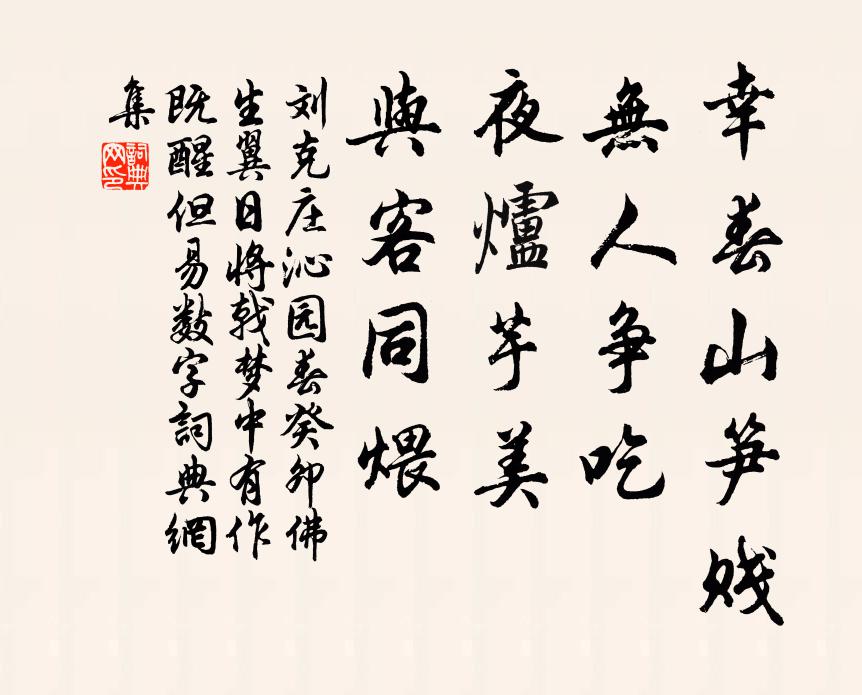 幸春山笋贱
無人争吃
夜爐芋美
與客同煨
刘克庄沁园春癸卯佛
生翼日将戟梦中有作
既醒但易数字詞典網
集
詞典網印